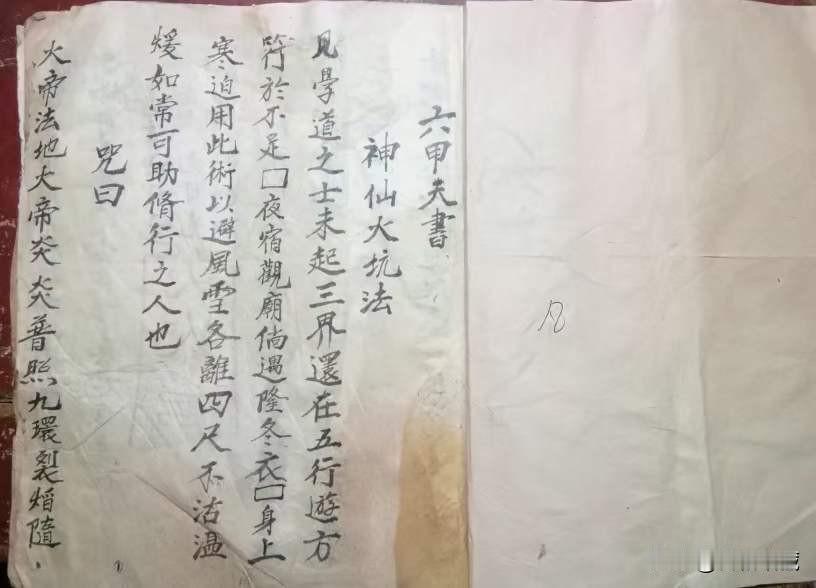 六甲天書
神仙火坑法
見學道之士未起三界還在五行遊方
符於不足□夜宿觀廟倘遇隆冬衣□身上
寒迫用此術以避風雪各離四尺不沾溫
煖如常可助脩行之人也
咒曰
火帝法地大帝炎炎普照九環裂焰隨
凡